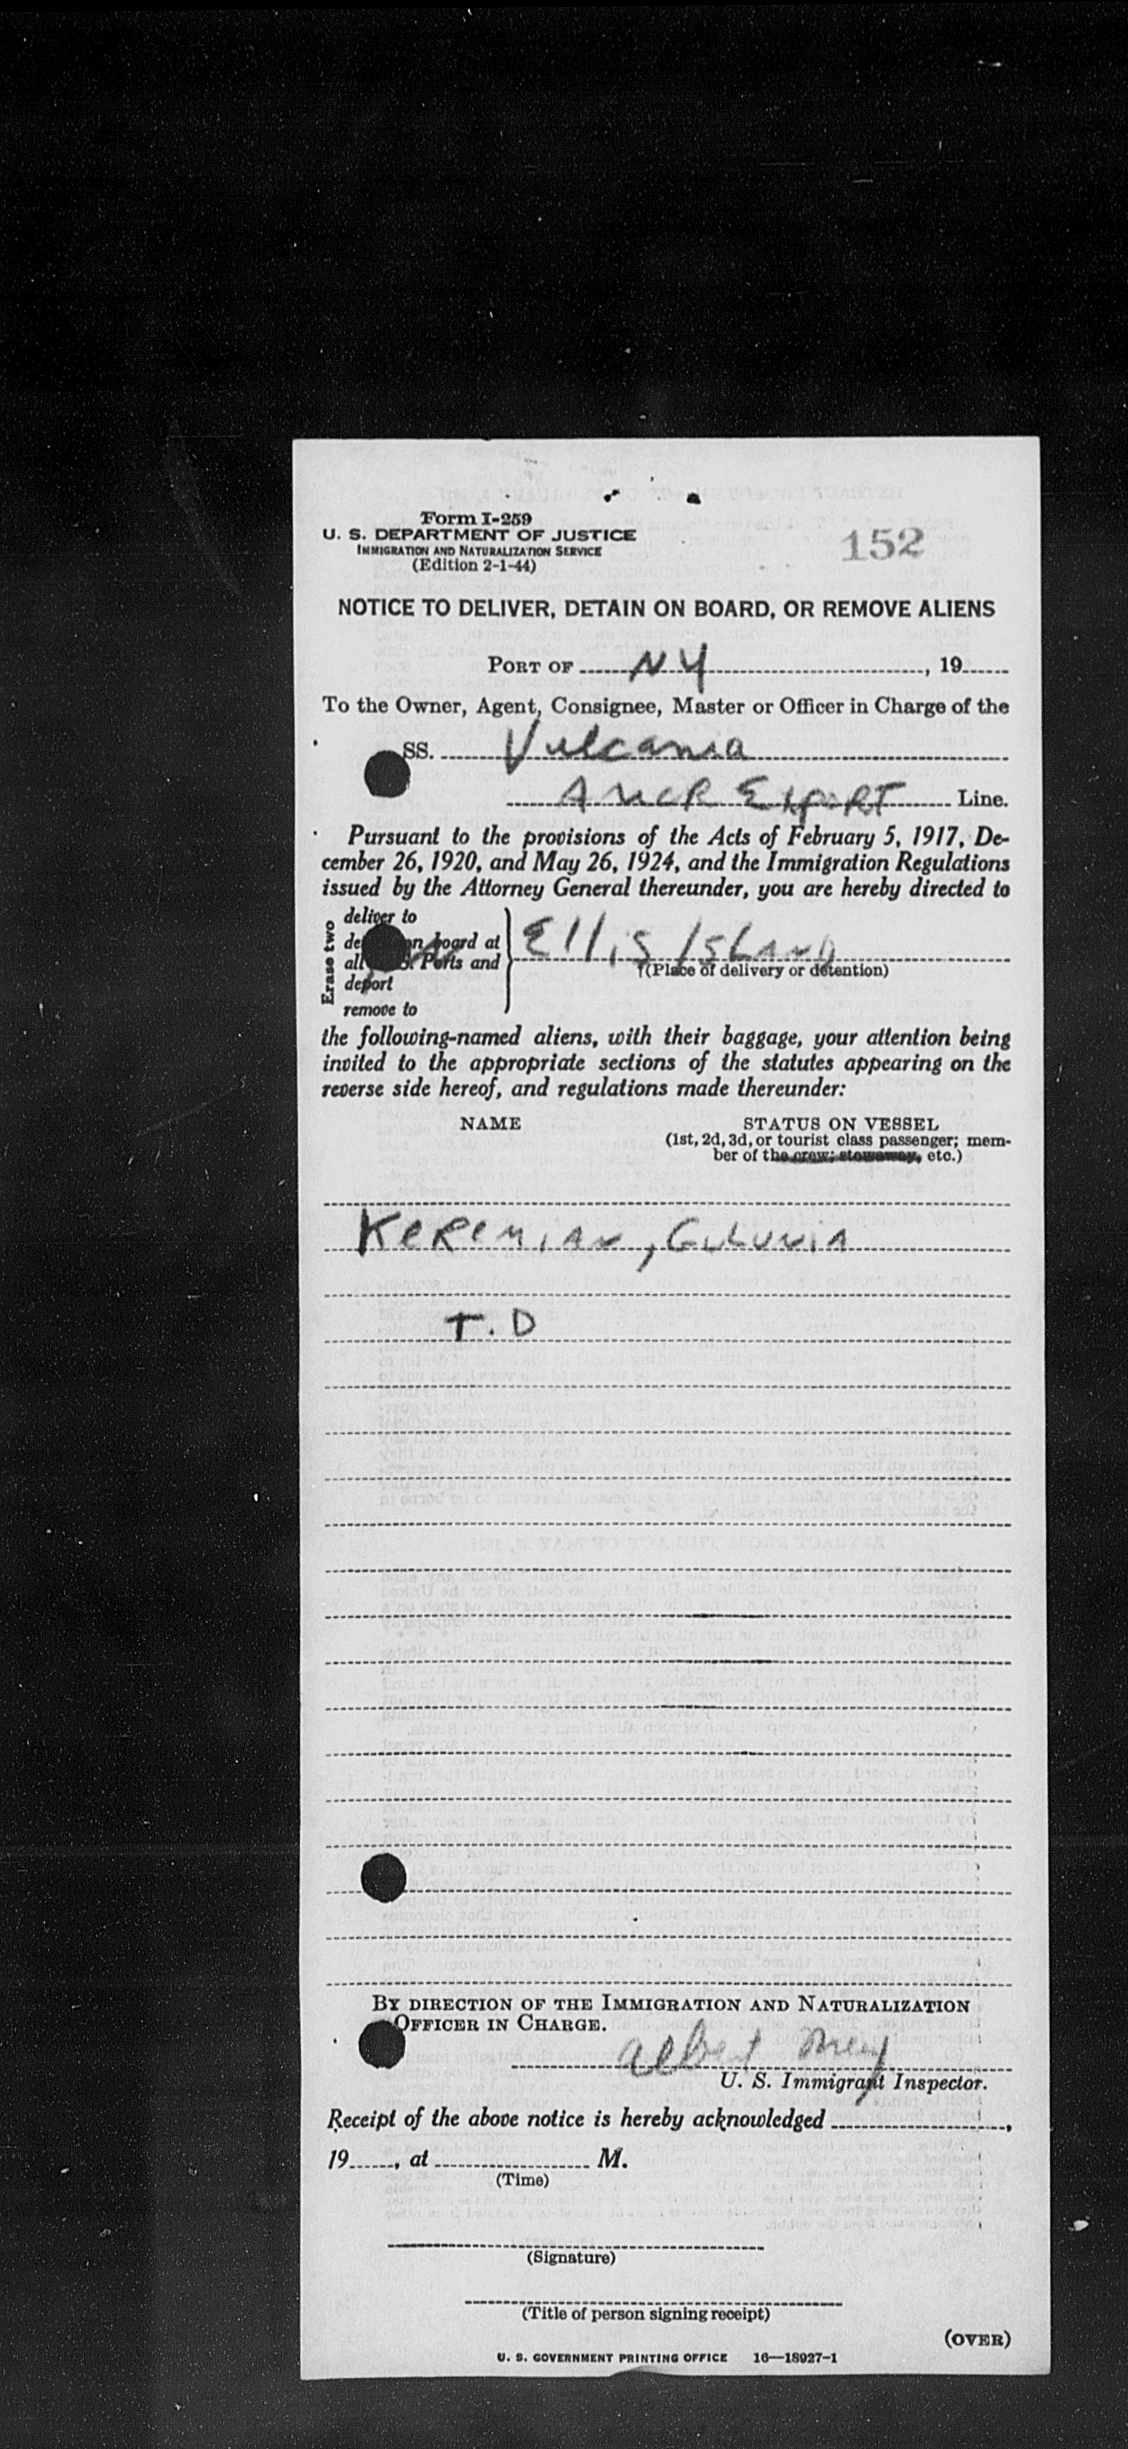 Form I-259
U. S. DEPARTMENT OF JUSTICE
IMMIGRATION AND NATURALIZATION SERVICE
(Edition 2-1-44)
152
NOTICE TO DELIVER, DETAIN ON BOARD, OR REMOVE ALIENS
PORT OF NY, 19
To the Owner, Agent, Consignee, Master or Officer in Charge of the
SS. Vulcania
AMER EXPORT Line.
Pursuant to the provisions of the Acts of February 5, 1917, De-
cember 26, 1920, and May 26, 1924, and the Immigration Regulations
issued by the Attorney General thereunder, you are hereby directed to
Erase two
deliver to
de on board at
all S. Ports and
deport
remove to
Ellis ISLAND
(Place of delivery or detention)
the following-named aliens, with their baggage, your attention being
invited to the appropriate sections of the statutes appearing on the
reverse side hereof, and regulations made thereunder:
NAME STATUS ON VESSEL
(1st, 2d, 3d, or tourist class passenger; mem-
ber of the crew; stowaway, etc.)
KEREMIAN,
T. D
BY DIRECTION OF THE IMMIGRATION AND NATURALIZATION
OFFICER IN CHARGE.
Albert
U. S. Immigrant Inspector.
Receipt of the above notice is hereby acknowledged ,
19 , at M.
(Time)
(Signature)
(Title of person signing receipt)
(OVER)
U. S. GOVERNMENT PRINTING OFFICE 16—18927-1